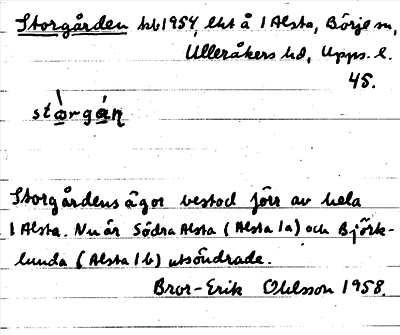 Storgården hb 1954, lht å 1 Alsta, Börje sn,
Ulleråkers hd, Upps. l.
45.
stòrgán
Storgårdens ägor bestod förr av hela
1 Alsta. Nu är Södra Alsta (Alsta 1a) och Björk-
lunda (Alsta 1b) utsöndrade.
Bror-Erik Ohlsson 1958.